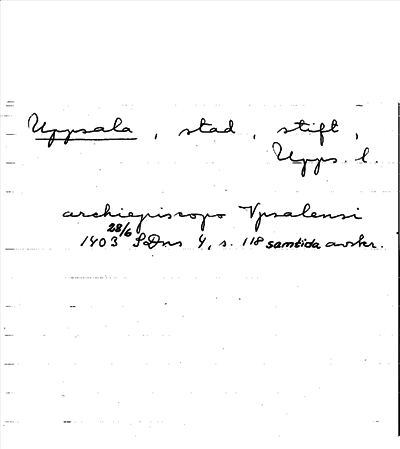 Uppsala, stad, stift,
Upps. l.
archiepiscopo Vpsalensi
28/6
1403 SDns 4, s. 118 samtida avskr.